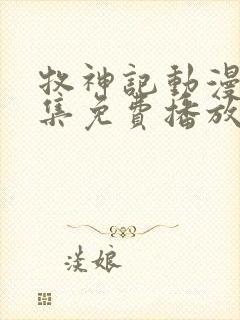 牧神記動漫
集免費播放
淡娘